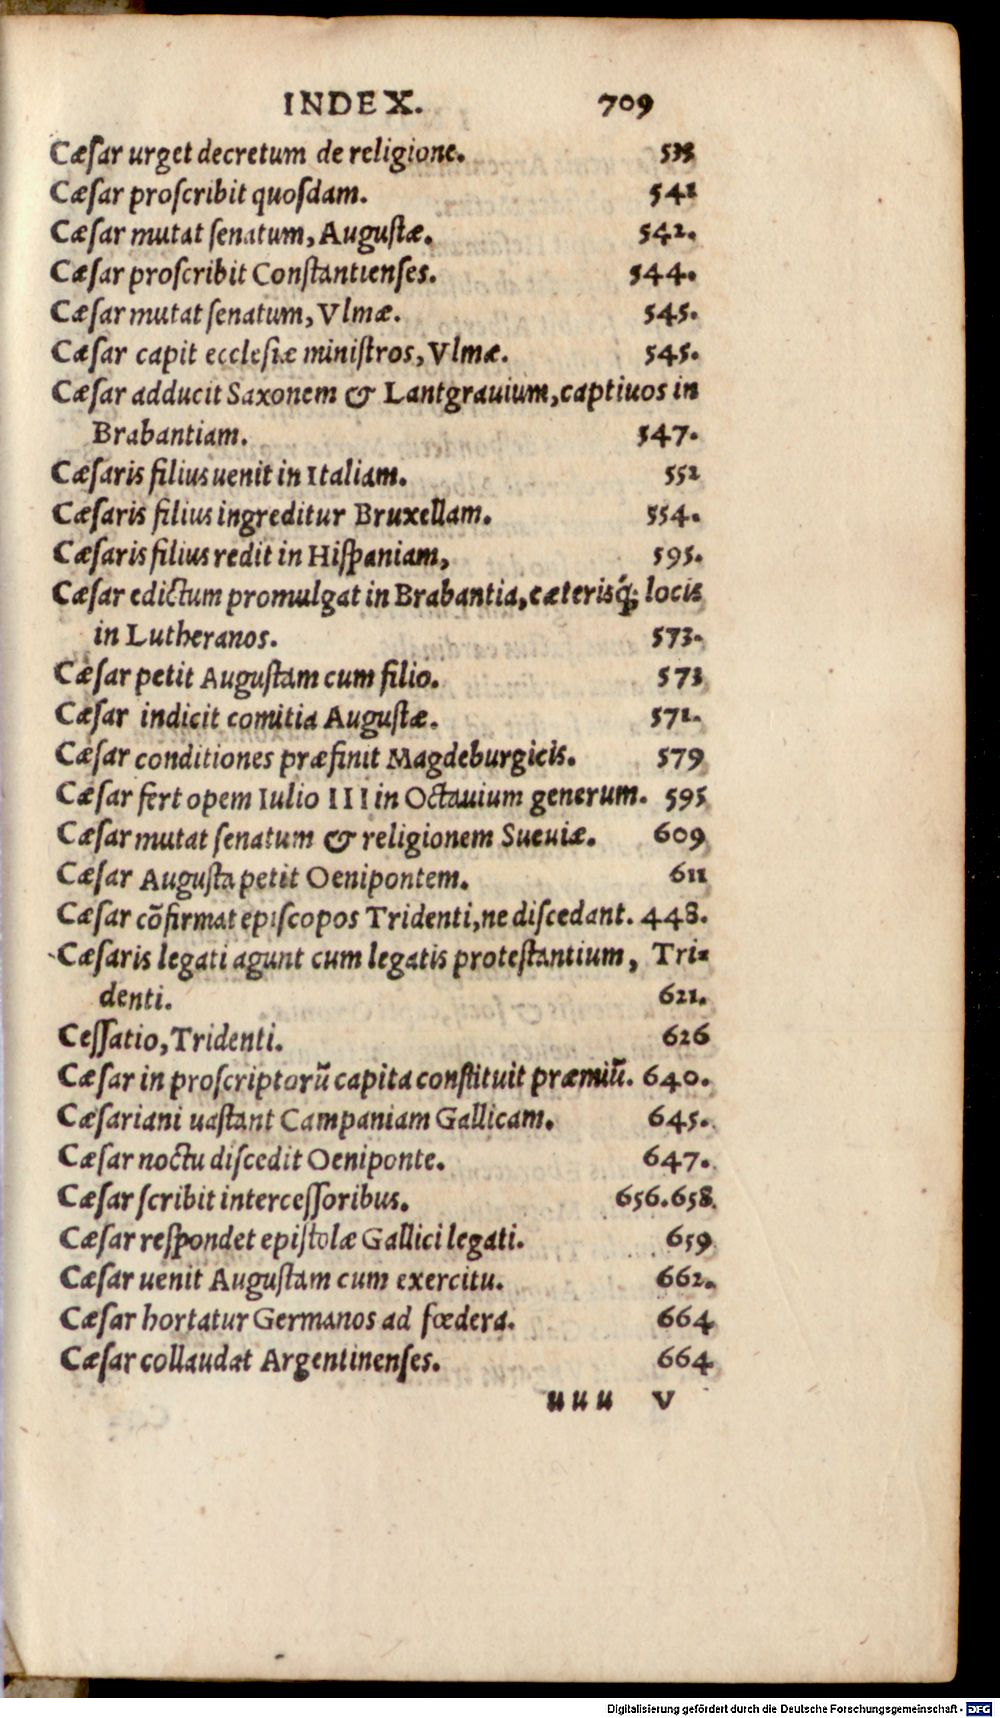 INDEX. 709
Cæſar urget decretum de religione. 535
Cæſar proſcribit quoſdam. 541
Cæſar mutat ſenatum, Auguſtæ. 542.
Cæſar proſcribit Conſtantienſes. 544.
Cæſar mutat ſenatum, Vlmæ. 545.
Cæſar capit eccleſiæ miniſtros, Vlmæ. 545.
Cæſar adducit Saxonem & Lantgrauium, captiuos in
Brabantiam. 547.
Cæſaris filius uenit in Italiam. 552
Cæſaris filius ingreditur Bruxellam. 554.
Cæſaris filius redit in Hiſpaniam, 595.
Cæſar edictum promulgat in Brabantia, cæterisq́; locis
in Lutheranos. 573.
Cæſar petit Auguſtam cum filio. 573
Cæſar indicit comitia Auguſtæ. 571.
Cæſar conditiones præfinit Magdeburgicis. 579
Cæſar fert opem Iulio III in Octauium generum. 595
Cæſar mutat ſenatum & religionem Sueuiæ. 609
Cæſar Auguſta petit Oenipontem. 611
Cæſar cõfirmat epiſcopos Tridenti, ne diſcedant. 448.
Cæſaris legati agunt cum legatis proteſtantium, Tri-
denti. 621.
Ceſſatio, Tridenti. 626
Cæſar in proſcriptorũ capita conſtituit præmiũ. 640.
Cæſariani uaſtant Campaniam Gallicam. 645.
Cæſar noctu diſcedit Oeniponte. 647.
Cæſar ſcribit interceſſoribus. 656.658.
Cæſar reſpondet epiſtolæ Gallici legati. 659
Cæſar uenit Auguſtam cum exercitu. 662.
Cæſar hortatur Germanos ad fœdera. 664
Cæſar collaudat Argentinenſes. 664
uuu v
Digitalisierung gefördert durch die Deutsche Forschungsgemeinschaft - DFG